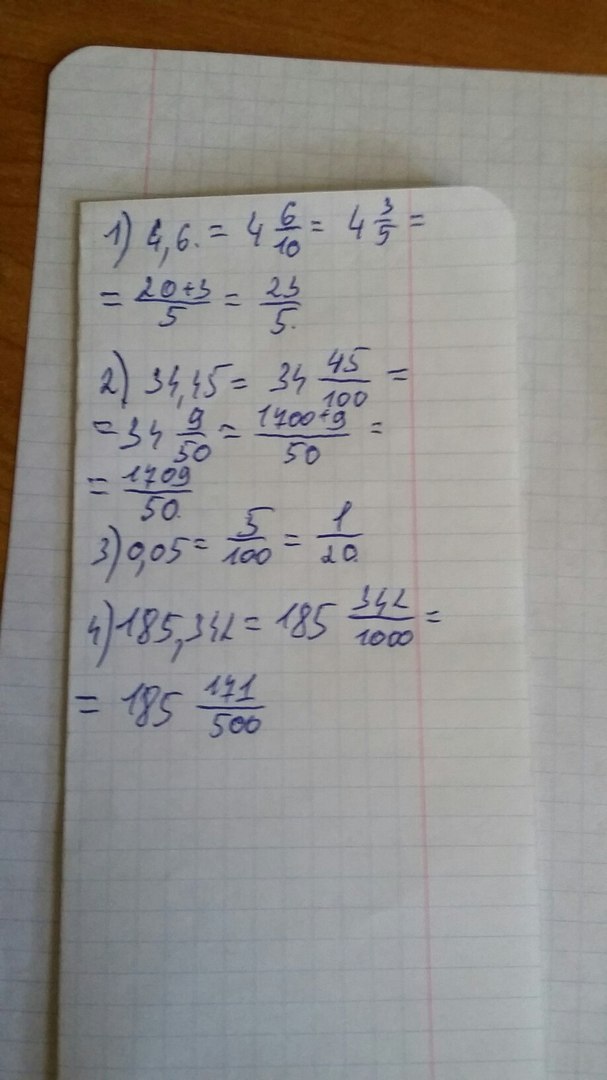 1) 4,6. = 4 6/10 = 4 3/5 =
= 20+3/5 = 23/5.
2) 34,45 = 34 45/100 =
= 34 9/50 = 1700+9/50 =
= 1709/50.
3) 0,05 = 5/100 = 1/20.
4) 185,342 = 185 342/1000 =
= 185 171/500